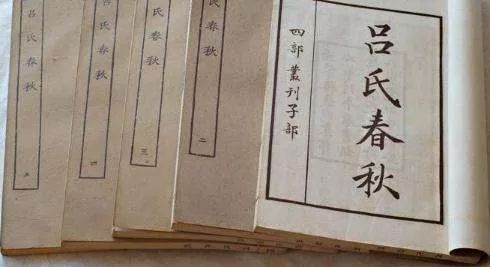 吕氏春秋
四部叢刊子部
氏春秋
二
氏春秋
三
吕氏春秋
四
吕氏春秋
五